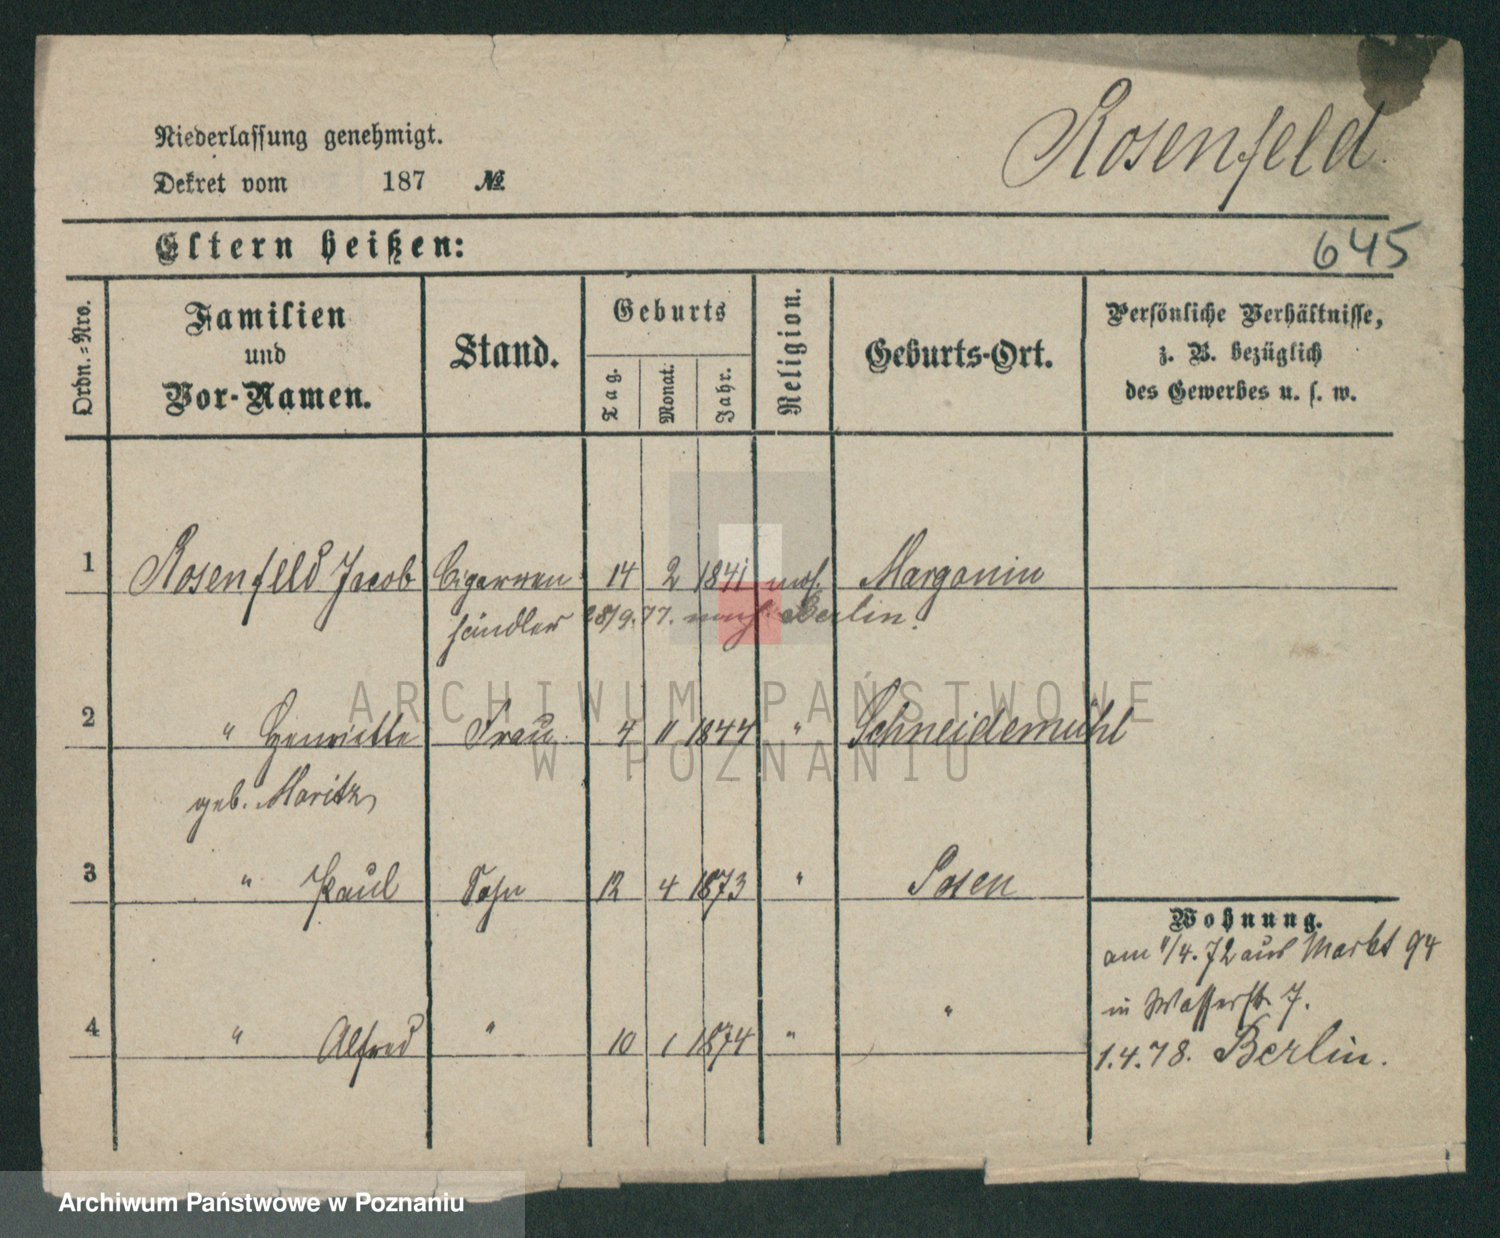 Rosenfeld.
Niederlassung genehmigt.
Dekret vom 187 №
Eltern heißen: 645
Ordn.=Nro. Familien und Vor-Namen. Stand. Geburts Tag. Monat. Jahr. Religion. Geburts-Ort. Persönliche Verhältnisse, z. B. bezüglich des Gewerbes u. s. w.
1 Rosenfeld Jacob Cigarren 14 2 1841 mos. Margonin
händler 28/9.77. nach Berlin.
2 " Henriette Frau 4 11 1844 " Schneidemühl
geb. Moritz
3 " Paul Sohn 12 4 1873 " Posen
Wohnung.
am 1/4.72 aus Markt 94
in Wasserstr. 7.
4 " Alfred " 10 1 1874 " "
1.4.78. Berlin.
ARCHIWUM PAŃSTWOWE
W POZNANIU
Archiwum Państwowe w Poznaniu